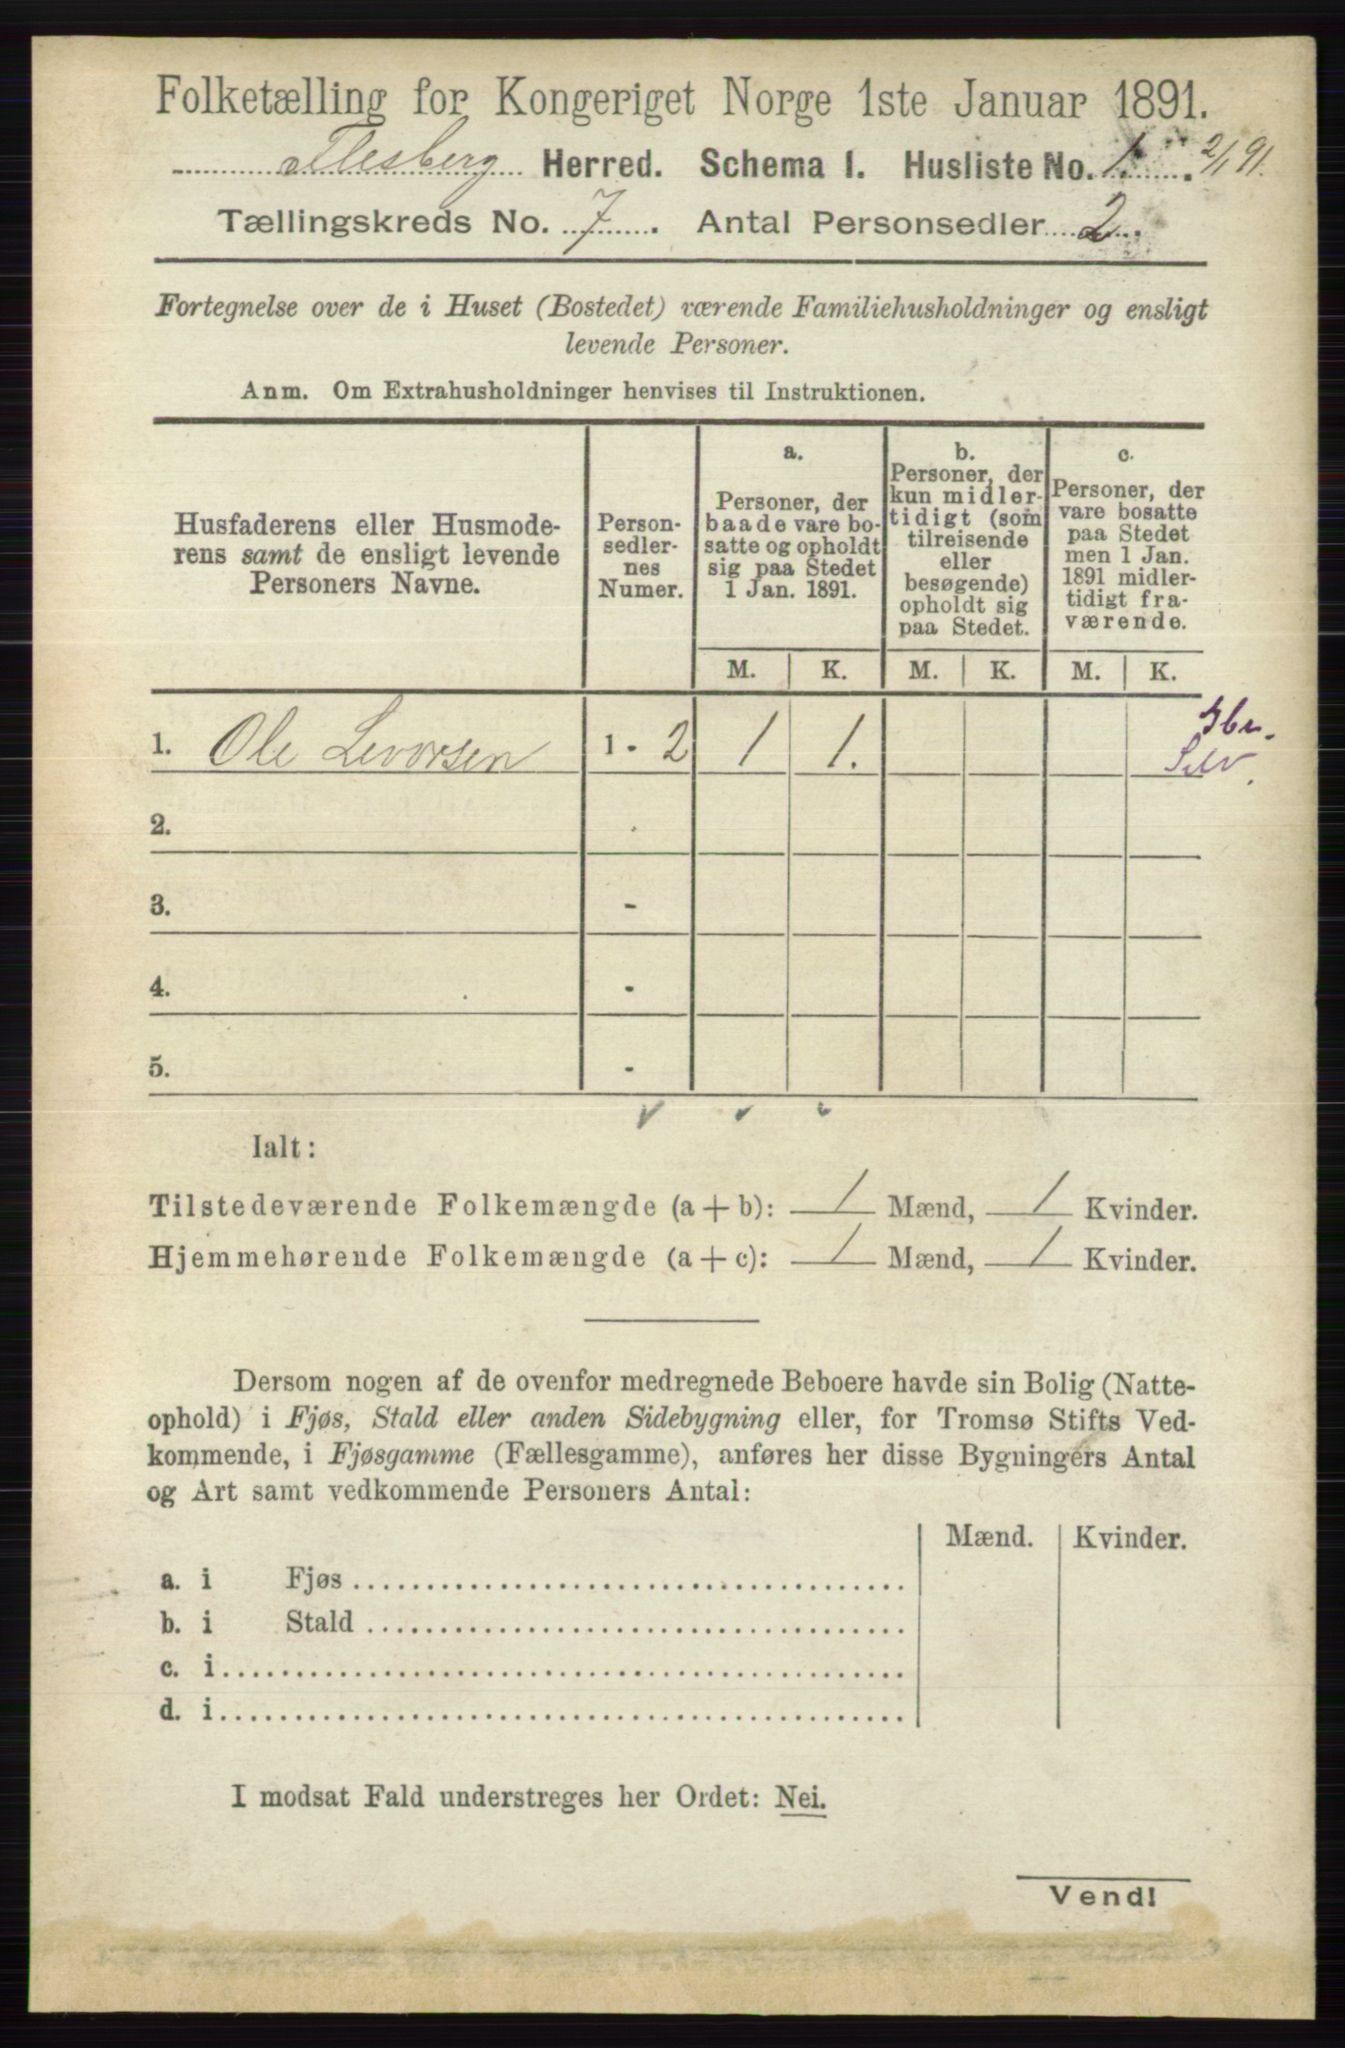 Folketælling for Kongeriget Norge 1ste Januar 1891.
Flesberg Herred. Schema I. Husliste No. 1. 2/1 91.
Tællingskreds No. 7. Antal Personsedler 2.
Fortegnelse over de i Huset (Bostedet) værende Familiehusholdninger og ensligt
levende Personer.
Anm. Om Extrahusholdninger henvises til Instruktionen.
Husfaderens eller Husmode-
rens samt de ensligt levende
Personers Navne.
Person-
sedler-
nes
Numer.
a.
Personer, der
baade vare bo-
satte og opholdt
sig paa Stedet
1 Jan. 1891.
b.
Personer, der
kun midler-
tidigt (som
tilreisende
eller
besøgende)
opholdt sig
paa Stedet.
c.
Personer, der
vare bosatte
paa Stedet
men 1 Jan.
1891 midler-
tidigt fra-
værende.
M. K. M. K. M. K.
1. Ole Levorsen 1 - 2 1 1.
Selv.
2.
3. -
4. -
5. -
Ialt:
Tilstedeværende Folkemængde (a + b): 1 Mænd, 1 Kvinder.
Hjemmehørende Folkemængde (a + c): 1 Mænd, 1 Kvinder.
Dersom nogen af de ovenfor medregnede Beboere havde sin Bolig (Natte-
ophold) i Fjøs, Stald eller anden Sidebygning eller, for Tromsø Stifts Ved-
kommende, i Fjøsgamme (Fællesgamme), anføres her disse Bygningers Antal
og Art samt vedkommende Personers Antal:
Mænd. Kvinder.
a. i Fjøs
b. i Stald
c. i
d. i
I modsat Fald understreges her Ordet: Nei.
Vend!